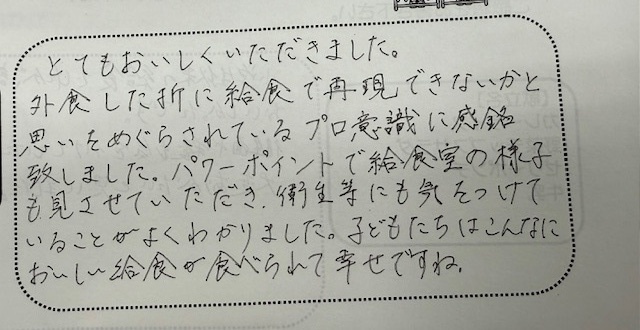 とてもおいしくいただきました。
外食した折に給食で再現できないかと
思いをめぐらされているプロ意識に感銘
致しました。パワーポイントで給食室の様子
も見させていただき、衛生等にも気をつけて
いることがよくわかりました。子どもたちはこんなに
おいしい給食が食べられて幸せですね。